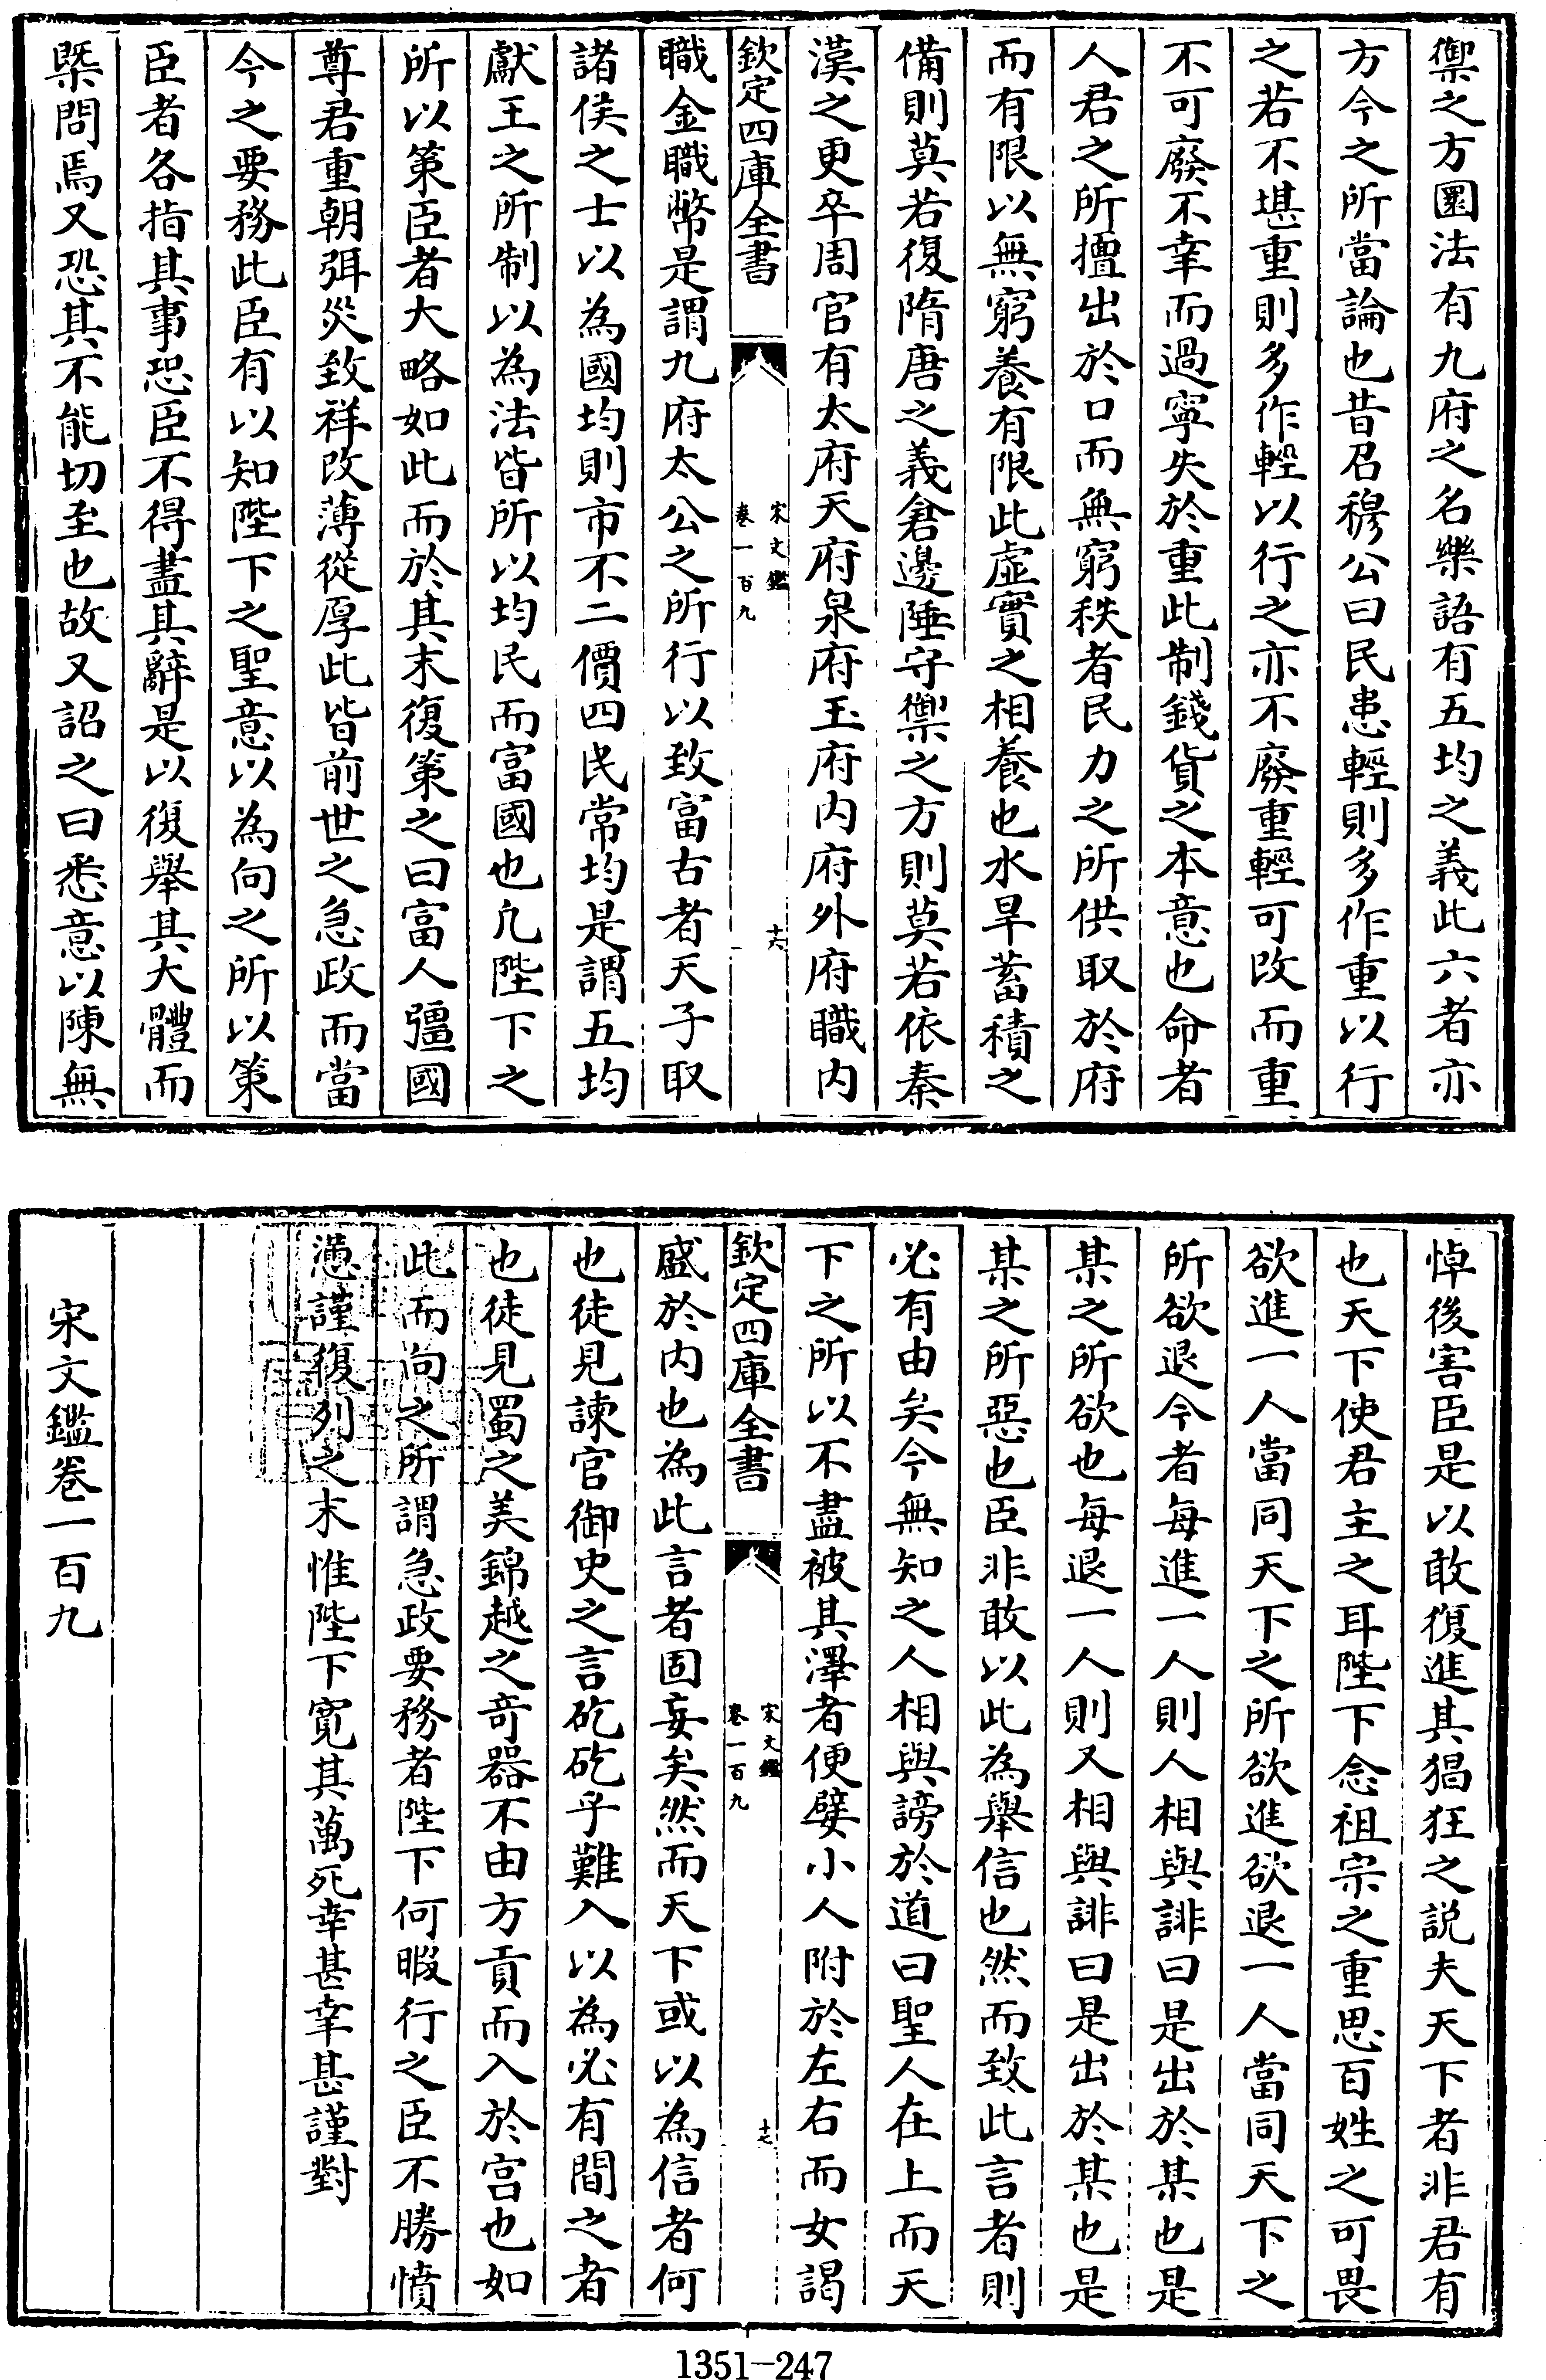 禦之方圜法有九府之名樂語有五均之義此六者亦
方今之所當論也昔召穆公曰民患輕則多作重以行
之若不堪重則多作輕以行之亦不廢重輕可改而重
不可廢不幸而過寧失於重此制錢貨之本意也命者
人君之所擅出於口而無窮秩者民力之所供取於府
而有限以無窮養有限此虛實之相養也水旱蓄積之
備則莫若復隋唐之義倉邊陲守禦之方則莫若依秦
漢之更卒周官有太府天府泉府玉府内府外府職内
欽定四庫全書
宋文鑑
卷一百九
十六
職金職幣是謂九府太公之所行以致富古者天子取
諸侯之士以為國均則市不二價四民常均是謂五均
獻王之所制以為法皆所以均民而富國也凡陛下之
所以策臣者大略如此而於其末復策之曰富人彊國
尊君重朝弭災致祥改薄從厚此皆前世之急政而當
今之要務此臣有以知陛下之聖意以為向之所以策
臣者各指其事恐臣不得盡其辭是以復舉其大體而
槩問焉又恐其不能切至也故又詔之曰悉意以陳無
悼後害臣是以敢復進其猖狂之説夫天下者非君有
也天下使君主之耳陛下念祖宗之重思百姓之可畏
欲進一人當同天下之所欲進欲退一人當同天下之
所欲退今者每進一人則人相與誹曰是出於某也是
某之所欲也每退一人則又相與誹曰是出於某也是
某之所惡也臣非敢以此為舉信也然而致此言者則
必有由矣今無知之人相與謗於道曰聖人在上而天
下之所以不盡被其澤者便嬖小人附於左右而女謁
欽定四庫全書
宋文鑑
卷一百九
十七
盛於内也為此言者固妄矣然而天下或以為信者何
也徒見諫官御史之言矻矻乎難入以為必有間之者
也徒見蜀之美錦越之奇器不由方貢而入於宫也如
此而向之所謂急政要務者陛下何暇行之臣不勝憤
懣謹復列之末惟陛下寛其萬死幸甚幸甚謹對
宋文鑑卷一百九
1351-247